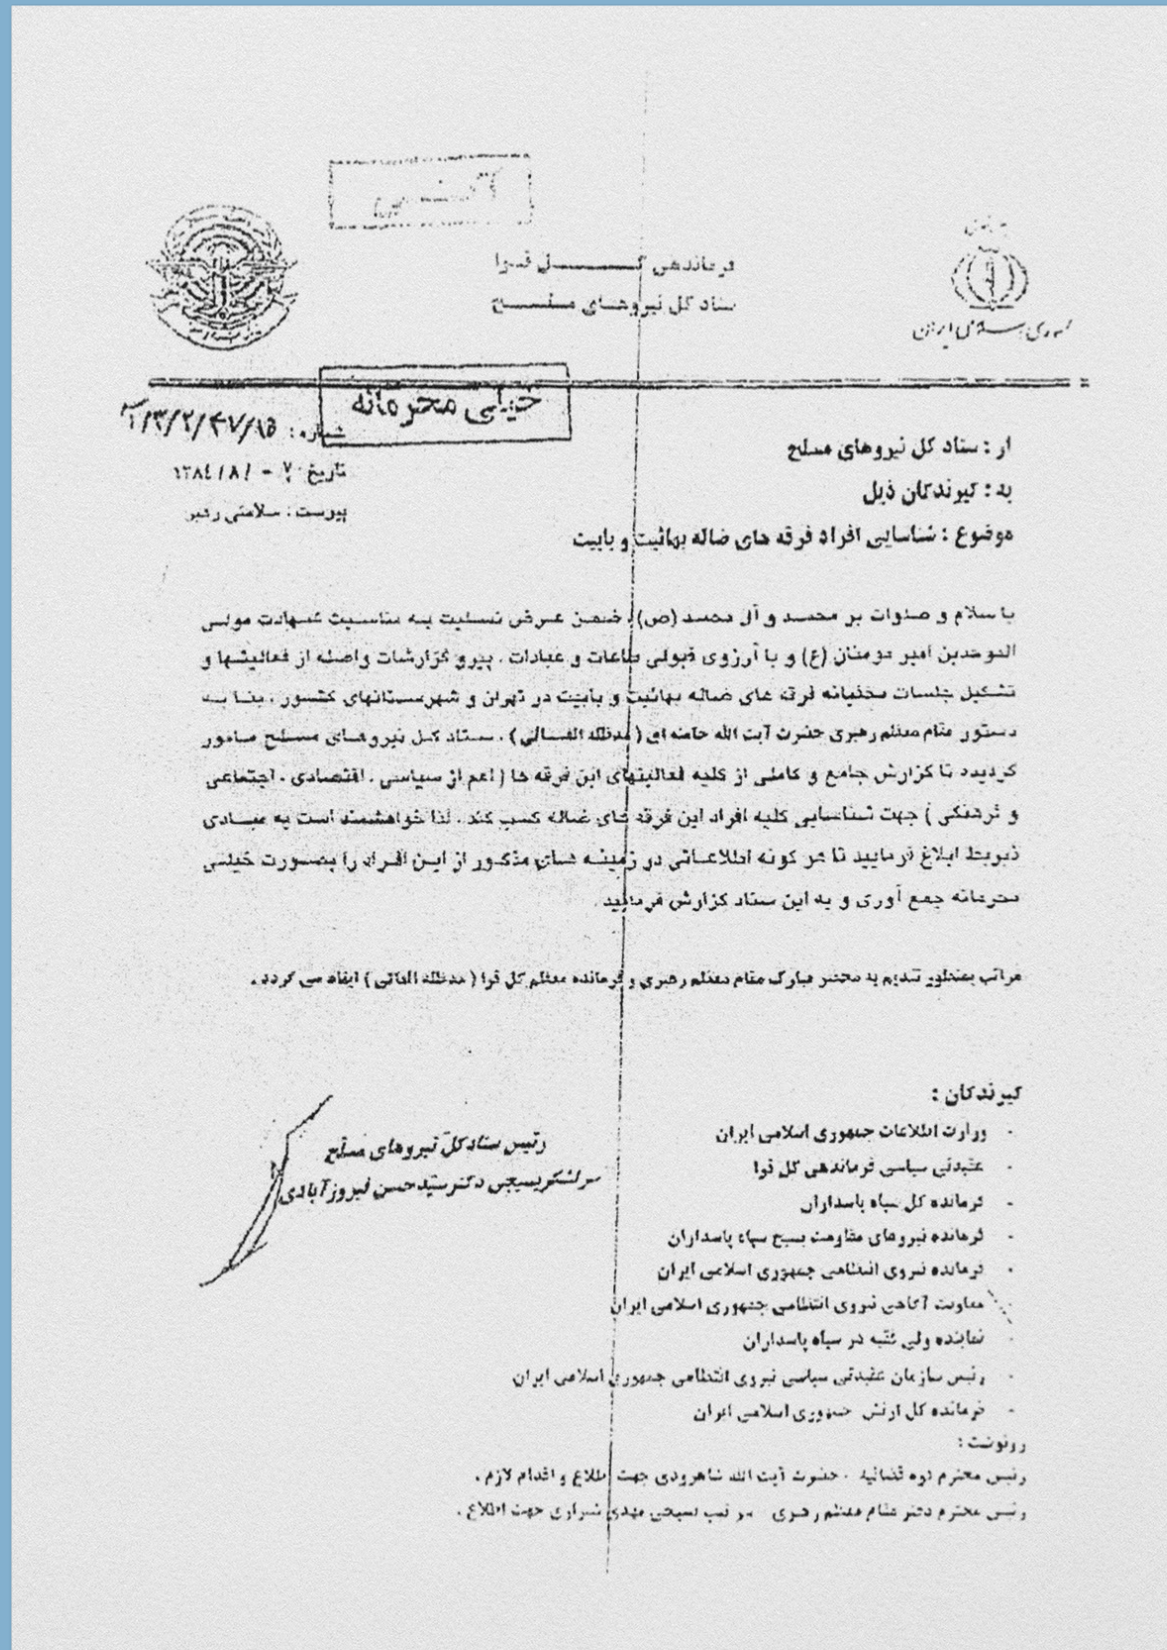 فرماندهی کل قوا
ستاد کل نیروهای مسلح
جمهوری اسلامی ایران
خیلی محرمانه
شماره :
تاریخ
پیوست : سلامتی رهبر
از : ستاد کل نیروهای مسلح
به : گیرندگان ذیل
موضوع : شناسایی افراد فرقه های ضاله بهائیت و بابیت
با سلام و صلوات بر محمد و آل محمد (ص) ، ضمن عرض تسلیت به مناسبت شهادت مولی
الموحدین امیر مومنان (ع) و با آرزوی قبولی طاعات و عبادات . پیرو گزارشات واصله از فعالیتها و
تشکیل جلسات مخفیانه فرقه های ضاله بهائیت و بابیت در تهران و شهرستانهای کشور ، بنا به
دستور مقام معظم رهبری حضرت آیت الله خامنه ای ( مدظله العالی ) ، ستاد کل نیروهای مسلح مامور
گردیده تا گزارش جامع و کاملی از کلیه فعالیتهای این فرقه ها ( اعم از سیاسی ، اقتصادی ، اجتماعی
و فرهنگی ) جهت شناسایی کلیه افراد این فرقه های ضاله کسب کند . لذا خواهشمند است به مبادی
ذیربط ابلاغ فرمایید تا هر گونه اطلاعاتی در زمینه های مذکور از این افراد را بصورت خیلی
محرمانه جمع آوری و به این ستاد گزارش فرمایید .
مراتب بمنظور تقدیم به محضر مبارک مقام معظم رهبری و فرمانده معظم کل قوا ( مدظله العالی ) ایفاد می گردد .
رئیس ستاد کل نیروهای مسلح
سرلشکر بسیجی دکتر سید حسن فیروزآبادی
گیرندگان :
- وزارت اطلاعات جمهوری اسلامی ایران
- عقیدتی سیاسی فرماندهی کل قوا
- فرمانده کل سپاه پاسداران
- فرمانده نیروهای مقاومت بسیج سپاه پاسداران
- فرمانده نیروی انتظامی جمهوری اسلامی ایران
- معاونت آگاهی نیروی انتظامی جمهوری اسلامی ایران
- نماینده ولی فقیه در سپاه پاسداران
- رئیس سازمان عقیدتی سیاسی نیروی انتظامی جمهوری اسلامی ایران
- فرمانده کل ارتش جمهوری اسلامی ایران
رونوشت :
رئیس محترم قوه قضائیه ، حضرت آیت الله شاهرودی جهت اطلاع و اقدام لازم .
رئیس محترم دفتر مقام معظم رهبری جهت اطلاع .